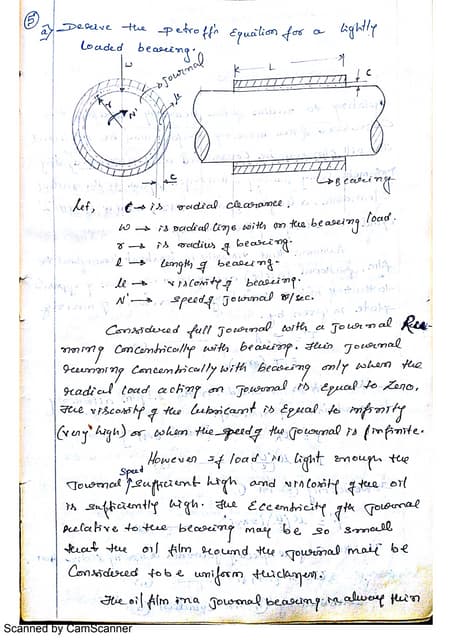 ⑤
a) Desrive the petroff's Equation for a lightly
loaded bearing.
w
journal
r
N'
c
L
c
Bearing
Let, C → is radial clearance.
W → is radial line with on the bearing load.
r → is radius of bearing.
l → length of bearing.
μ → viscosity of bearing.
N' → speed of journal r/sec.
Considered full journal with a journal Ru-
nning concentrically with bearing. This journal
running concentrically with bearing only when the
radial load acting on journal is equal to zero.
The viscosity of the lubricant is equal to infinity
(very high) or when the speed of the journal is infinite.
However if load is light enough the
Journal speed sufficient high and viscosity of the oil
is sufficiently high. The Eccentricity of the journal
relative to the bearing may be so small
that the oil film round the journal may be
Considered to be uniform thickness.
The oil film in a journal bearing is always thin
Scanned by CamScanner